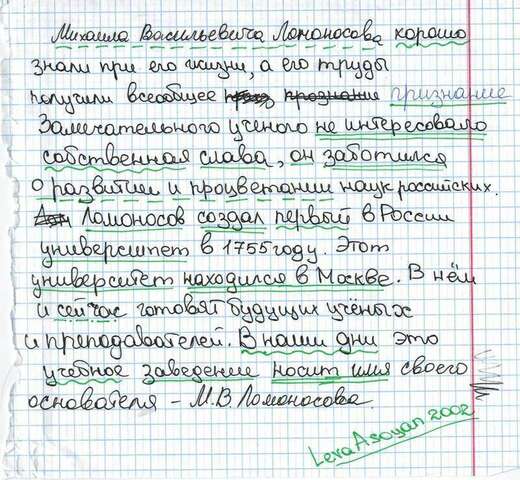 Михаила Васильевича Ломоносова хорошо
знали при его жизни, а его труды
получили всеобщее признание
Замечательного ученого не интересовало
собственная слава, он заботился
о развитии и процветании наук российских.
Ломоносов создал первый в России
университет в 1755 году. Этот
университет находился в Москве. В нём
и сейчас готовят будущих учёных
и преподавателей. В наши дни это
учебное заведение носит имя своего
основателя - М.В. Ломоносова.
Leva Asoyan 2002